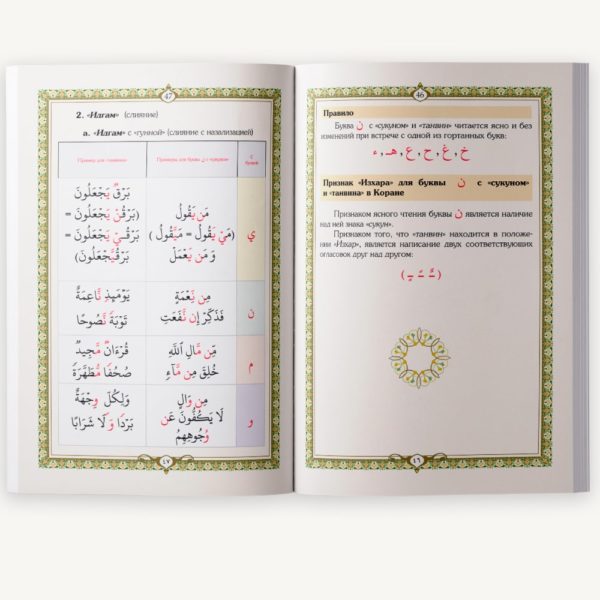 46
Правило
Буква ن с «сукуном» и «танвин» читается ясно и без
изменений при встрече с одной из гортанных букв:
خ , غ , ح , ع , هـ , ء
Признак «Изхара» для буквы ن с «сукуном»
и «танвина» в Коране
Признаком ясного чтения буквы ن является наличие
над ней знака «сукун».
Признаком того, что «танвин» находится в положе-
нии «Изхар», является написание двух соответствующих
огласовок друг над другом:
٤٦
47
2. «Идгам» (слияние)
а. «Идгам» с «гунной» (слияние с назализацией)
Пример для танвина
Примеры для буквы ن с «сукуном»
ي
مَن يَقُولُ
(مَيْ يَقُولُ = مَيَّقُولُ )
وَ مَن يَعْمَلْ
بَرْقٌ يَجْعَلُونَ
(بَرْقُنْ يَجْعَلُونَ =
بَرْقُـيْ يَجْعَلُونَ =
بَرْقُيَّجْعَلُونَ)
ن
مِن نِّعْمَةٍ
فَذَكِّرْ إِن نَّفَعَتِ
يَوْمَئِذٍ نَّاعِمَةٌ
تَوْبَةً نَّصُوحًا
م
مِّن مَّالِ اللَّهِ
خُلِقَ مِن مَّآءٍ
قُرْءَانٌ مَّجِيدٌ
صُحُفًا مُّطَهَّرَةً
و
مِن وَالٍ
لَا يَكُفُّونَ عَن
وُجُوهِهِمُ
وَلِكُلٍّ وِجْهَةٌ
بَرْدًا وَ لَا شَرَابًا
٤٧